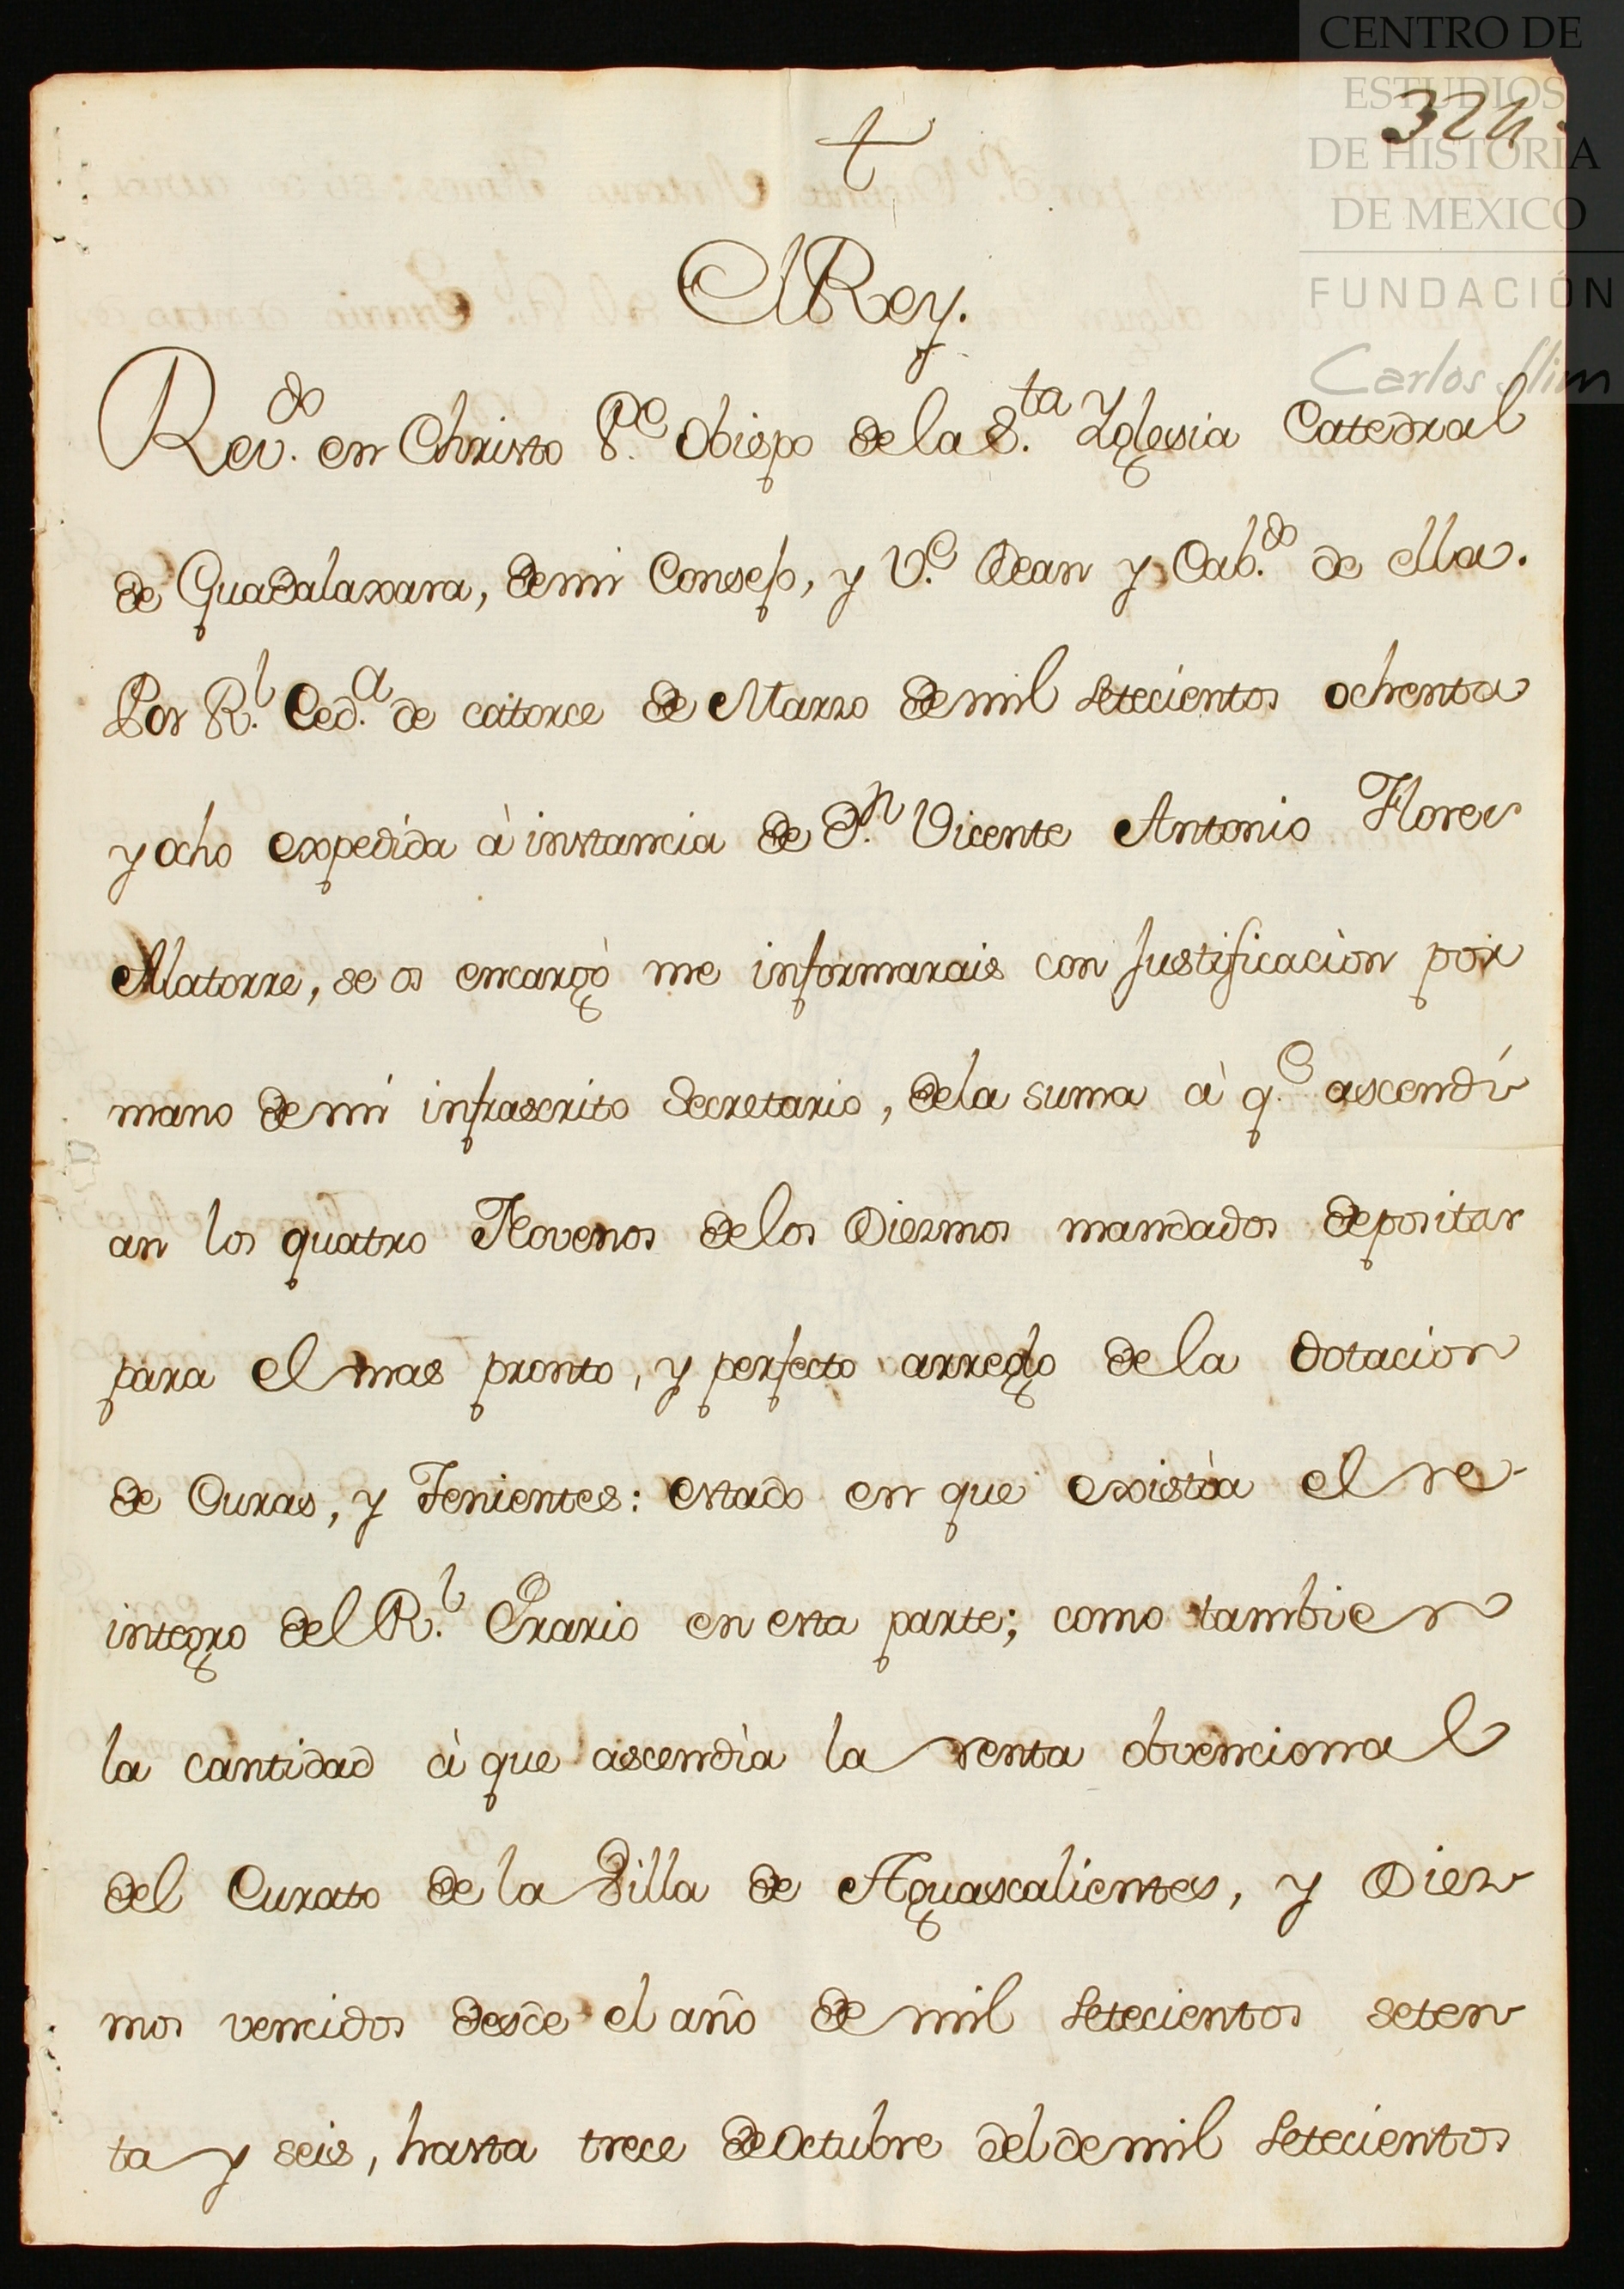 CENTRO DE
ESTUDIOS
DE HISTORIA
DE MEXICO
FUNDACIÓN
Carlos Slim
324.
El Rey.
Rev.do en Christo P.e Obispo de la S.ta Yglesia Catedral
de Guadalaxara, de mi Consejo, y V.e Dean y Cab.do de ella.
Por R.l Ced.a de catorce de Marzo de mil setecientos ochenta
y ocho expedida à instancia de D.n Vicente Antonio Flores
Alatorre, se os encargò me informarais con justificaciòn por
mano de mi infrascrito Secretario, de la suma à q.e ascendi
an los quatro Novenos de los Diezmos mandados depositar
para el mas pronto, y perfecto arreglo de la dotacion
de Curas, y Tenientes: estado en que existìa el re-
integro del R.l Erario en esta parte; como tambien
la cantidad à que ascendìa la renta obvencional
del Curato de la Villa de Aguascalientes, y Diez
mos vencidos desde el año de mil setecientos seten
ta y seis, hasta trece de Octubre del de mil setecientos